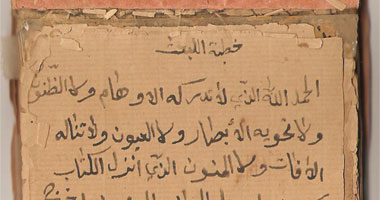 خطبة الليث
الحمد الله الذي لا تدركه الاوهام ولا الظنون
ولا تحويه الأبصار ولا العيون ولا تناله
الآفات ولا المنون الذي أنزل الكتاب